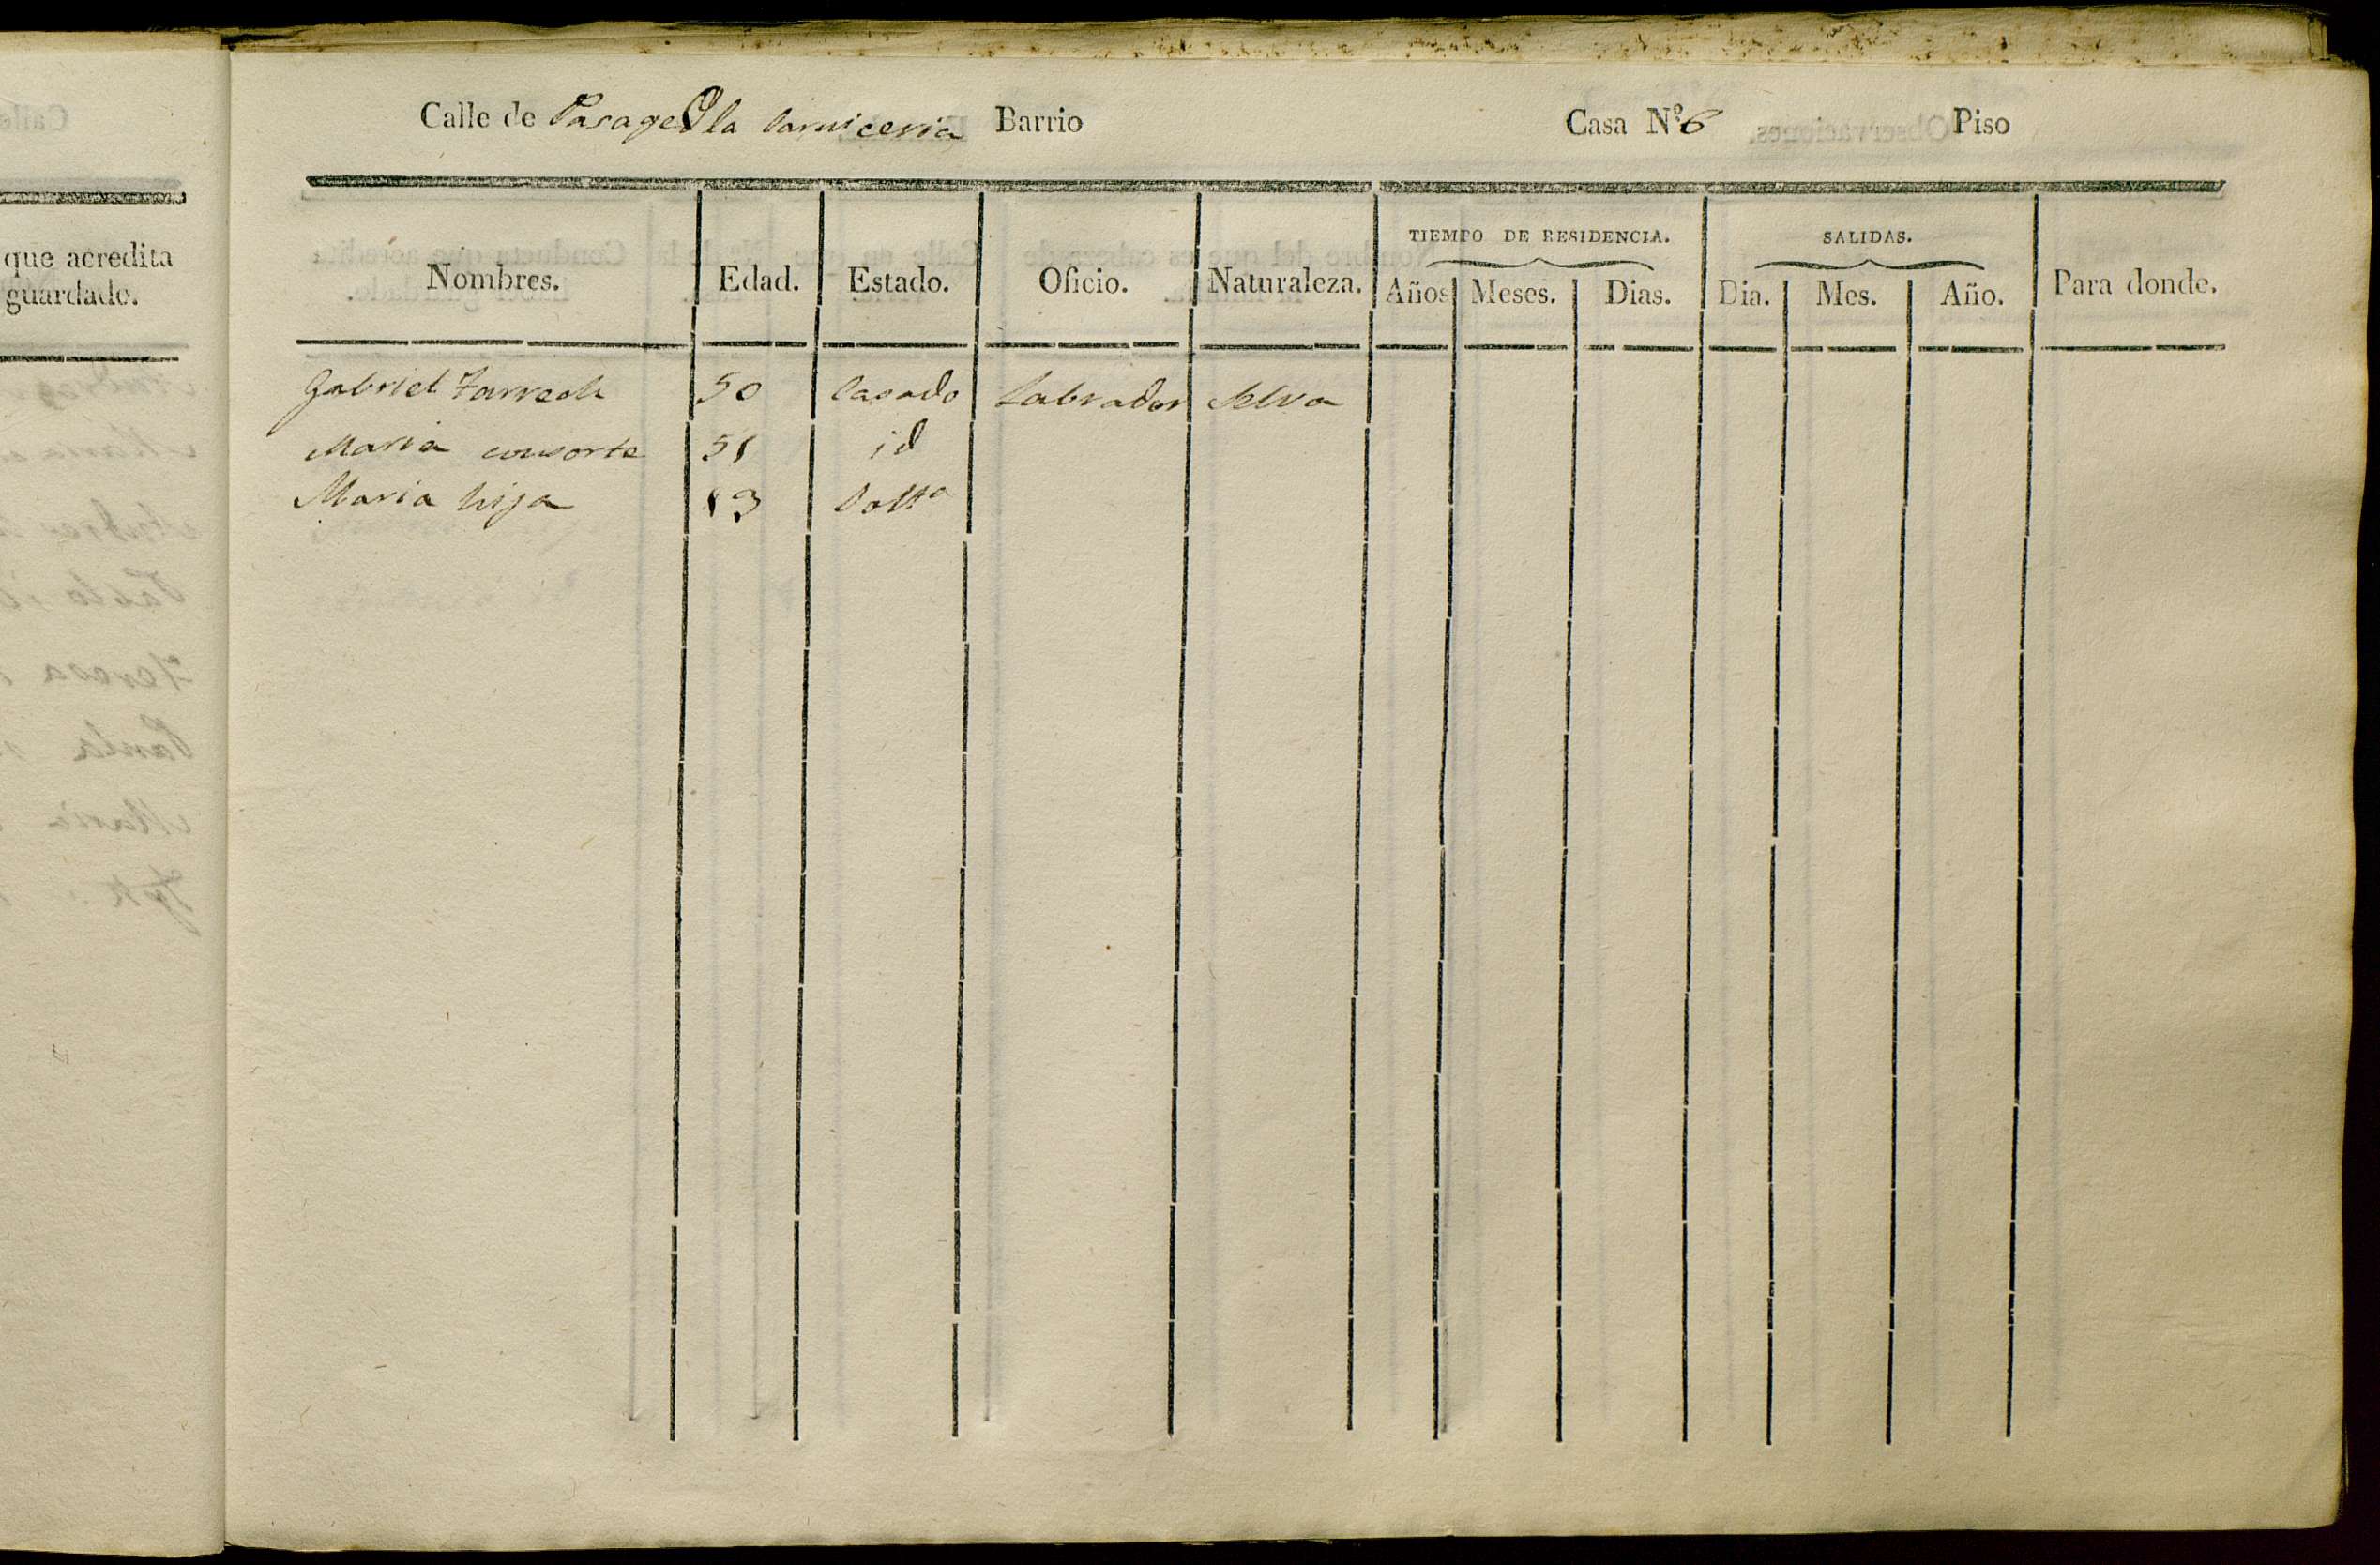 que acredita
guardado.
Calle de Pasage d la Carniceria Barrio Casa Nº 6 Piso
TIEMPO DE RESIDENCIA. SALIDAS.
Nombres. Edad. Estado. Oficio. Naturaleza. Años Meses. Dias. Dia. Mes. Año. Para donde.
Gabriel 50 Casado Labrador Selva
Maria consorte 51 id
Maria hija 13 Solta